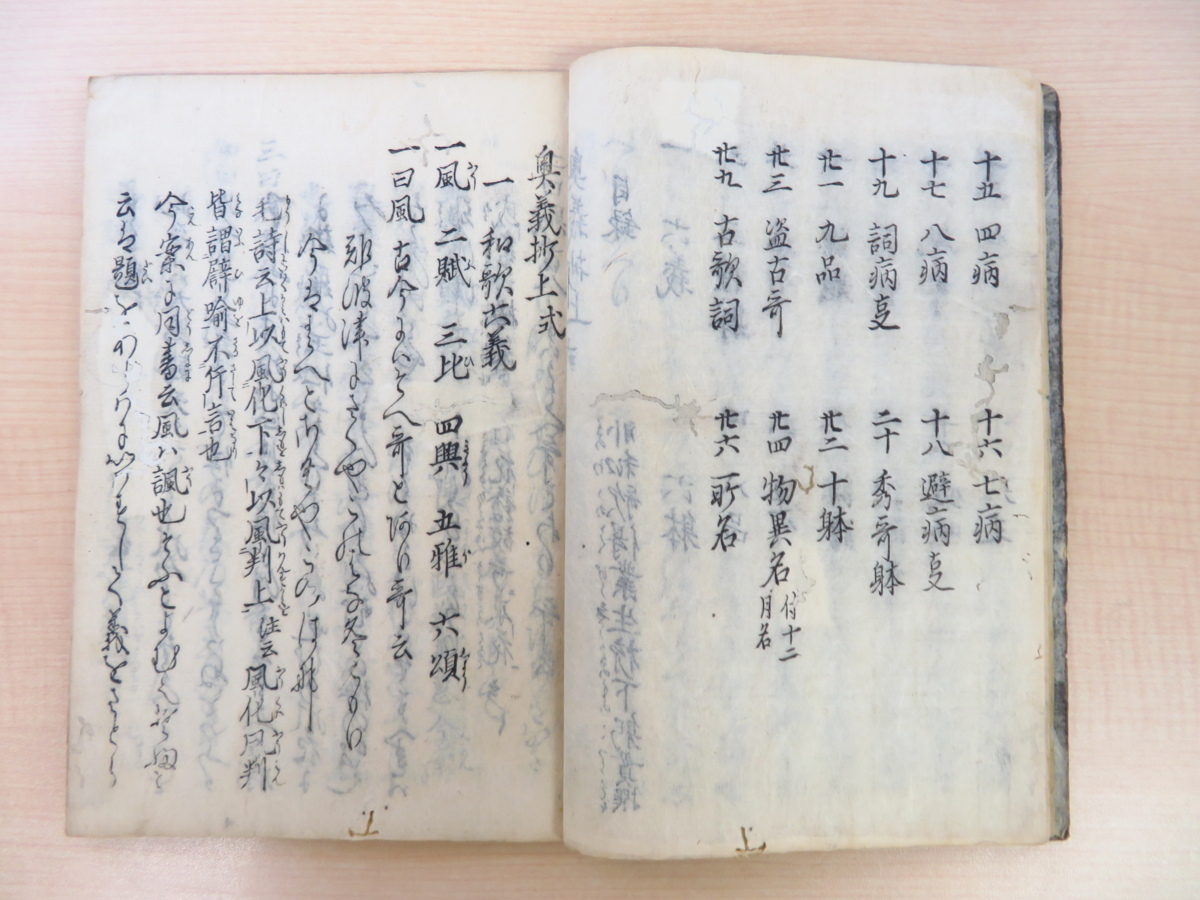 十五 四病 十六 七病
十七 八病 十八 避病㕝
十九 詞病㕝 二十 秀哥躰
廿一 九品 廿二 十躰
廿三 盗古哥 廿四 物異名 付十二月名
廿九 古歌詞 廿六 所名
奥義抄上 式
一 和歌六義
一風 二賦 三比 四興 五雅 六頌
一曰風 古今にいはそへ哥と 哥云
難波津にさくやこの花冬こもり
今ははるへとさくやこのはな
毛詩云上以風化下〻以風判上 注云 風化风判
皆謂譬喩不斥言也
今案に同書云風ハ諷也
云は題を 義をさとら